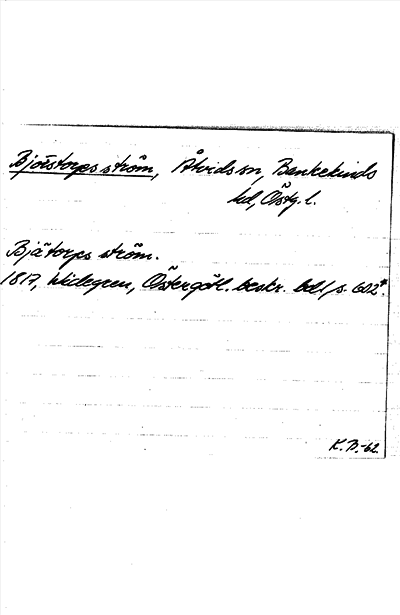 Bjöstorps ström, Åtvids sn, Bankekinds
hd, Östg. l.
Bjätorps ström.
1817, Widegren, Östergötl. beskr. bd 1, s. 602*.
K. B. -62.